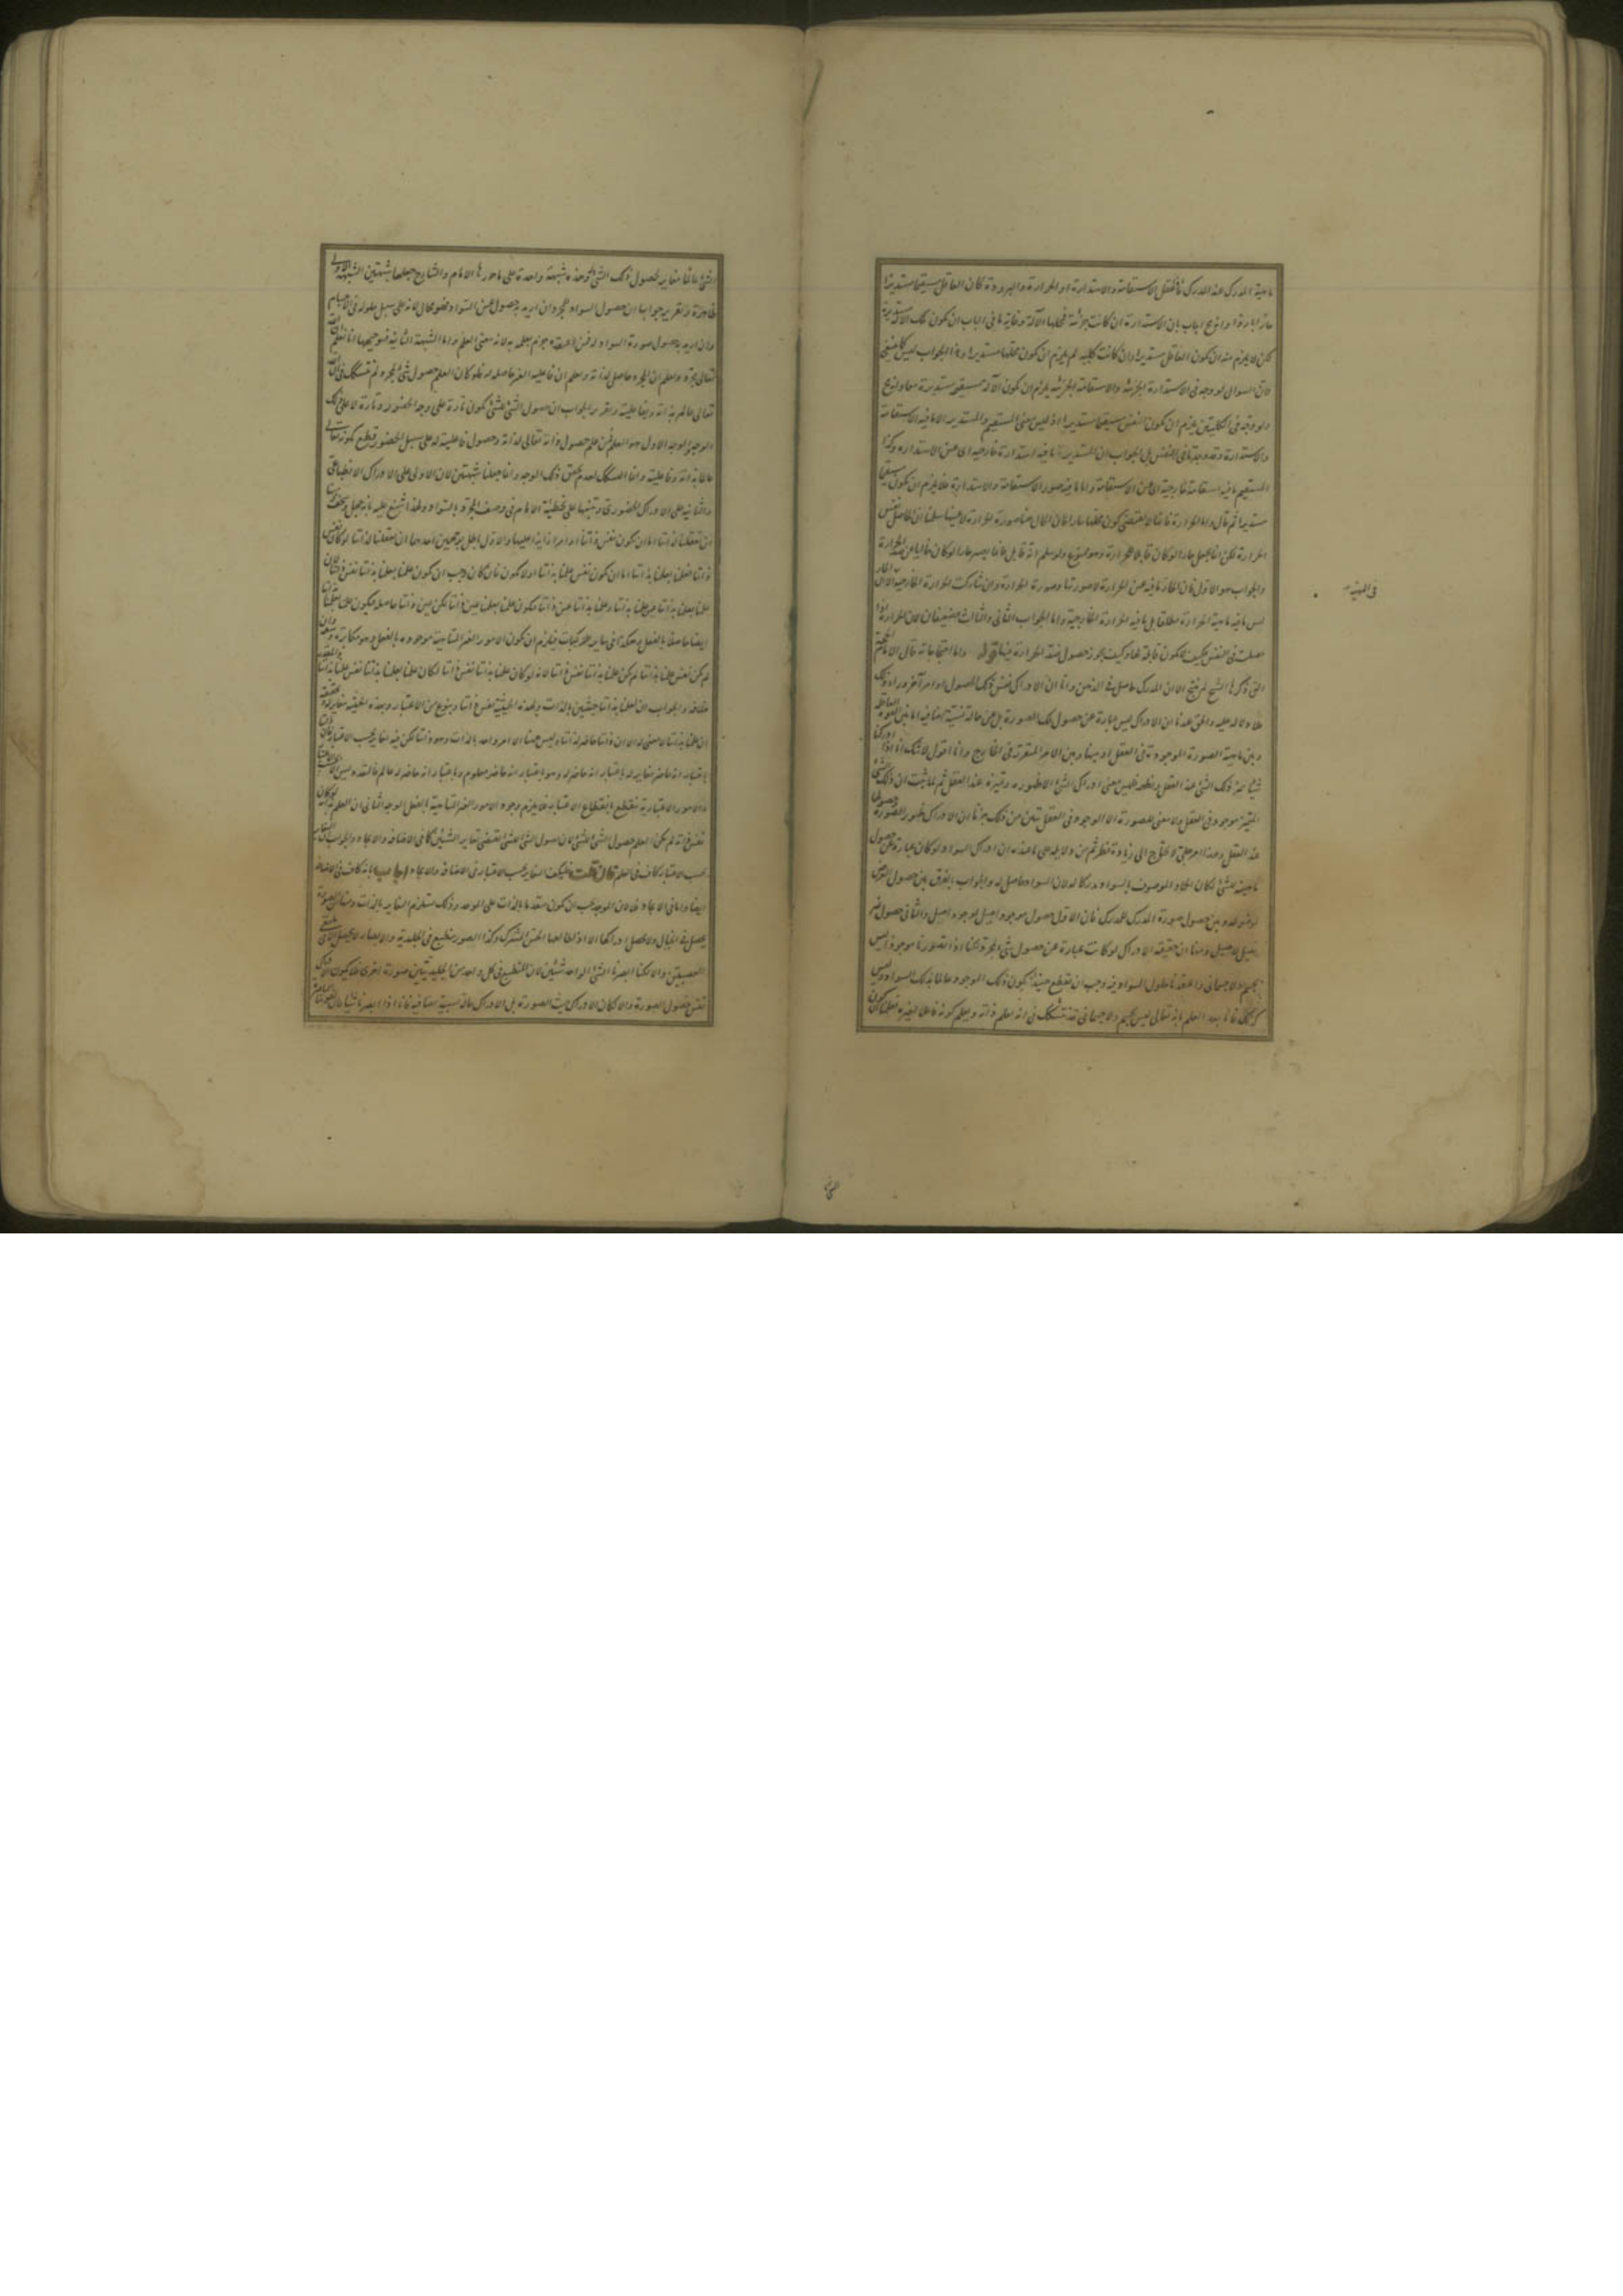 ماهية المدرك عند المدرك فالعقل الاستقامة والاستدارة او الحرارة والبرودة كان العاقل مستقيما مستديرا
حارا باردا والشيخ اجاب بان الاستدارة ان كانت جزئية فمحلها الآلة وغاية ما فى الباب ان يكون تلك الآلة مستديرة
لكن لا يلزم منه ان يكون العاقل مستديرا وان كانت كلية لم يلزم ان يكون محلها مستديرا وهذا الجواب ليس كما ينبغى
لان السؤال لو وجه فى الاستدارة الجزئية والاستقامة الجزئية يلزم ان يكون الآلة مستقيمة مستديرة معا
ولو وجه فى الكليتين يلزم ان يكون النفس مستقيما مستديرا اذ ليس معنى المستقيم والمستدير الا ما فيه الاستقامة
والاستدارة وقد وجدتا فى النفس بل الجواب ان المستدير ما فيه استدارة خارجية اى عين الاستدارة وكذا
المستقيم ما فيه استقامة خارجية اى عين الاستقامة واما ما فيه صور الاستقامة والاستدارة فلا يلزم ان يكون مستقيما
مستديرا ثم قال واما الحرارة فانها لا تقتضى كون محلها حارا فان الحال هنا صورة الحرارة لا عينها سلمنا ان الحاصل نفس
الحرارة لكن انما يجعل حارا لو كان قابلا للحرارة وهو ممنوع ولو سلم انه قابل فانما يصير حارا لو كان خاليا عن ضد الحرارة
والجواب هو الاول فان الحار ما فيه عين الحرارة لا صورتها وصورة الحرارة وان شاركت الحرارة الخارجية الا ان الحار
ليس ما فيه ماهية الحرارة مطلقا بل ما فيه الحرارة الخارجية واما الجواب الثانى والثالث فضعيفان لان الحرارة اذا
حصلت فى النفس فكيف لا يكون قابلة لها وكيف يجوز حصول ضد الحرارة فيها قوله واما احتجاجاته قال الامام الحجة
التى ذكرها الشيخ لم ينتج الا ان المدرك حاصل فى الذهن واما ان الادراك نفس ذلك الحصول او امر آخر وراء ذلك
فلا دلالة عليه والحق عندنا ان الادراك ليس عبارة عن حصول تلك الصورة بل عن حالة نسبية اضافية اما بين القوة العاقلة
وبين ماهية الصورة الموجودة فى العقل او بينها وبين الامر المتقرر فى الخارج وانا اقول لا شك انا اذا ادركنا
شيئا تميز ذلك الشئ عند العقل ويظهر فليس معنى ادراك الشئ الا ظهوره وتميزه عند العقل ثم لما ثبت ان ذلك الشئ
المتميز موجود فى العقل ولا معنى للصورة الا الموجود فى العقل تبين من ذلك جزما ان الادراك ظهور الصورة وحصولها
عند العقل وهذا امر جلى لا يحتاج الى زيادة نظر ثم من دلايله على ما عنده ان ادراك السواد لو كان عبارة عن حصول
ماهيته لشئ لكان الجماد الموصوف بالسواد مدركا له لان السواد حاصل له والجواب بالفرق بين حصول العرض
لموضوعه وبين حصول صورة المدرك للمدرك فان الاول حصول موجود اصيل لموجود اصيل والثانى حصول غير
اصيل لاصيل ومنها ان حقيقة الادراك لو كانت عبارة عن حصول شئ لمجرد لكنا اذا تصورنا موجودا ليس
بجسم ولا جسمانى واعتقدنا حلول السواد فيه وجب ان نقطع حينئذ بكون ذلك الموجود عالما بذلك السواد وليس
كذلك فانا بعد العلم بانه تعالى ليس بجسم ولا جسمانى قد نتشكك فى انه يعلم ذاته ويعلم كونه فاعلا لغيره فعلمنا ان كون
فى الهيئة
الشئ عالما مغاير لحصول ذلك الشئ وهذه شبهة واحدة على ما حررها الامام والشارح جعلها شبهتين الشبهة الاولى
ظاهرة وتقرير جوابها ان حصول السواد لمجرد ان اريد به حصول عين السواد فهو محال لانه على سبيل حلوله فى الاجسام
وان اريد به حصول صورة السواد له فمن اعتقده جزم بعلمه به لانه معنى العلم واما الشبهة الثانية فتوجيهها انا نعلم ان الله
تعالى مجرد ونعلم ان المجرد حاصل لذاته ونعلم ان فاعليه الغير حاصلة له فلو كان العلم حصول شئ لمجرد لم نتشكك فى ان الله
تعالى عالم بذاته وبفاعليته وتقرير الجواب ان حصول الشئ للشئ يكون تارة على وجه الحضور وتارة لا على ذلك
الوجه والوجه الاول هو العلم فمن علم حصول ذاته تعالى لذاته وحصول فاعليته له على سبيل الحضور قطع بكونه تعالى
عالما بذاته وفاعليته وانما التشكك لعدم تحقق ذلك الوجه وانما جعلها شبهتين لان الاولى على الادراك الانطباعى
والثانية على الادراك الحضورى وتنبيها على تخطئة الامام فى وصف المجرد بالسواد ولهذا شنع عليه بانه جهل ومنها
ان تعقلنا لذاتنا اما ان يكون نفس ذاتنا او امرا زايدا عليها والاول باطل بوجهين احدهما ان تعقلنا لذاتنا لو كان نفس
ذاتنا فعلمنا بعلمنا بذاتنا اما ان يكون نفس علمنا بذاتنا او لا يكون فان كان وجب ان يكون علمنا بعلمنا بذاتنا نفس ذاتنا
علمنا بعلمنا بذاتنا عين علمنا بذاتنا وعلمنا بذاتنا عين ذاتنا فيكون علمنا بعلمنا عين ذاتنا لكن عين ذاتنا حاصلة فيكون علمنا بعلمنا
ايضا حاصلا بالفعل وهكذا فى ساير المركبات فيلزم ان يكون الامور الغير المتناهية موجودة بالفعل وهو مكابرة وان
لم يكن نفس علمنا بذاتنا لم يكن علمنا بذاتنا نفس ذاتنا لانه لو كان علمنا بذاتنا نفس ذاتنا لكان علمنا بعلمنا بذاتنا نفس علمنا بذاتنا
خلافه والجواب ان لعلمنا بذاتنا حيثيتين بالذات وبهذه الحيثية نفس ذاتنا وبنوع من الاعتبار وبهذه الحيثية مغايرة
ان علمنا بذاتنا لا معنى له الا ان ذاتنا حاضرة لذاتنا وليس هنا الا امر واحد بالذات وهو ذاتنا لكن فيه تغاير بحسب الاعتبار
باعتبار انه حاضر مغاير له باعتبار انه حاضر له وهو باعتبار انه حاضر معلوم وباعتبار انه حاضر له عالم فالتعدد ليس الا بحسب
والامور الاعتبارية تنقطع بانقطاع الاعتبار فلا يلزم وجود الامور الغير المتناهية بالفعل الوجه الثانى ان العلم لو كان
نفس ذاته لم يكن العلم حصول الشئ للشئ لان حصول الشئ للشئ يقتضى تغاير الشيئين كما فى الاضافة والايجاد والجواب ان التغاير
بحسب الاعتبار كاف فى العلم فان قلت فليكف التغاير بحسب الاعتبار فى الاضافة والايجاد اجاب بانه كاف فى الاضافة
ايضا واما فى الايجاد فلا لان الموجد يجب ان يكون متقدما بالذات على الموجد وذلك مستلزم التغاير بالذات ومنها ان الصورة
يحصل فى الخيال ولا يحصل ادراكها الا اذا طالعها الحس المشترك وكذا الصور تنطبع فى الجليدية والابصار لا يحصل الا فى ملتقى
العصبتين والا لكنا ابصرنا الشئ الواحد شيئين لان المنطبع فى كل واحد من الجليديتين صورة اخرى فلا يكون الادراك
نفس حصول الصورة والا لكان الادراك حيث الصورة بل الادراك حالة نسبية اضافية فانا اذا ابصرنا شيئا